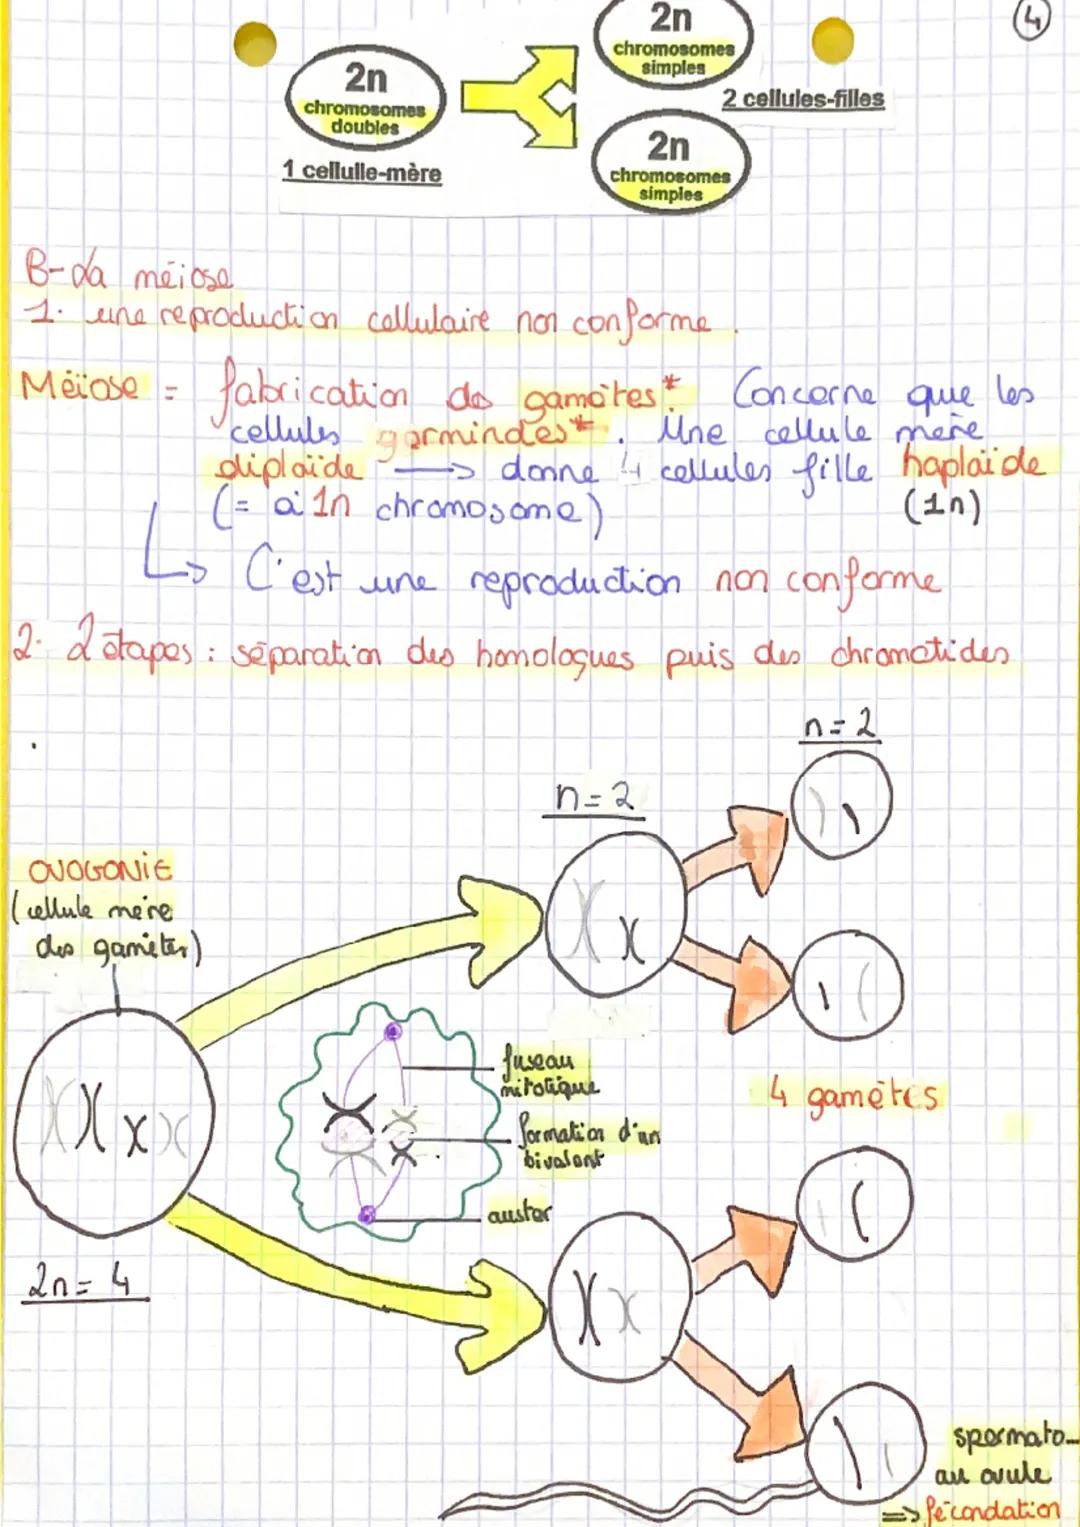 4
2n
chromosomes
simples
2n
chromosomes
doubles
2 cellules-filles
1 cellulle-mère
2n
chromosomes
simples
B- La méiose
1. une reproduction cellulaire non conforme.
Méiose = fabrication des gamètes*. Concerne que les
cellules germindes*. Une cellule mère
diploïde → donne 4 cellules fille haploïde
(= à 1n chromosome) (1n)
↳ C'est une reproduction non conforme
2. 2 étapes : séparation des homologues puis des chromatides
n = 2
n = 2
OVOGONIE
(cellule mère
des gamètes)
fuseau
mitotique
4 gamètes
formation d'un
bivalent
auster
2n = 4
spermato-
au ovule
=> fécondation